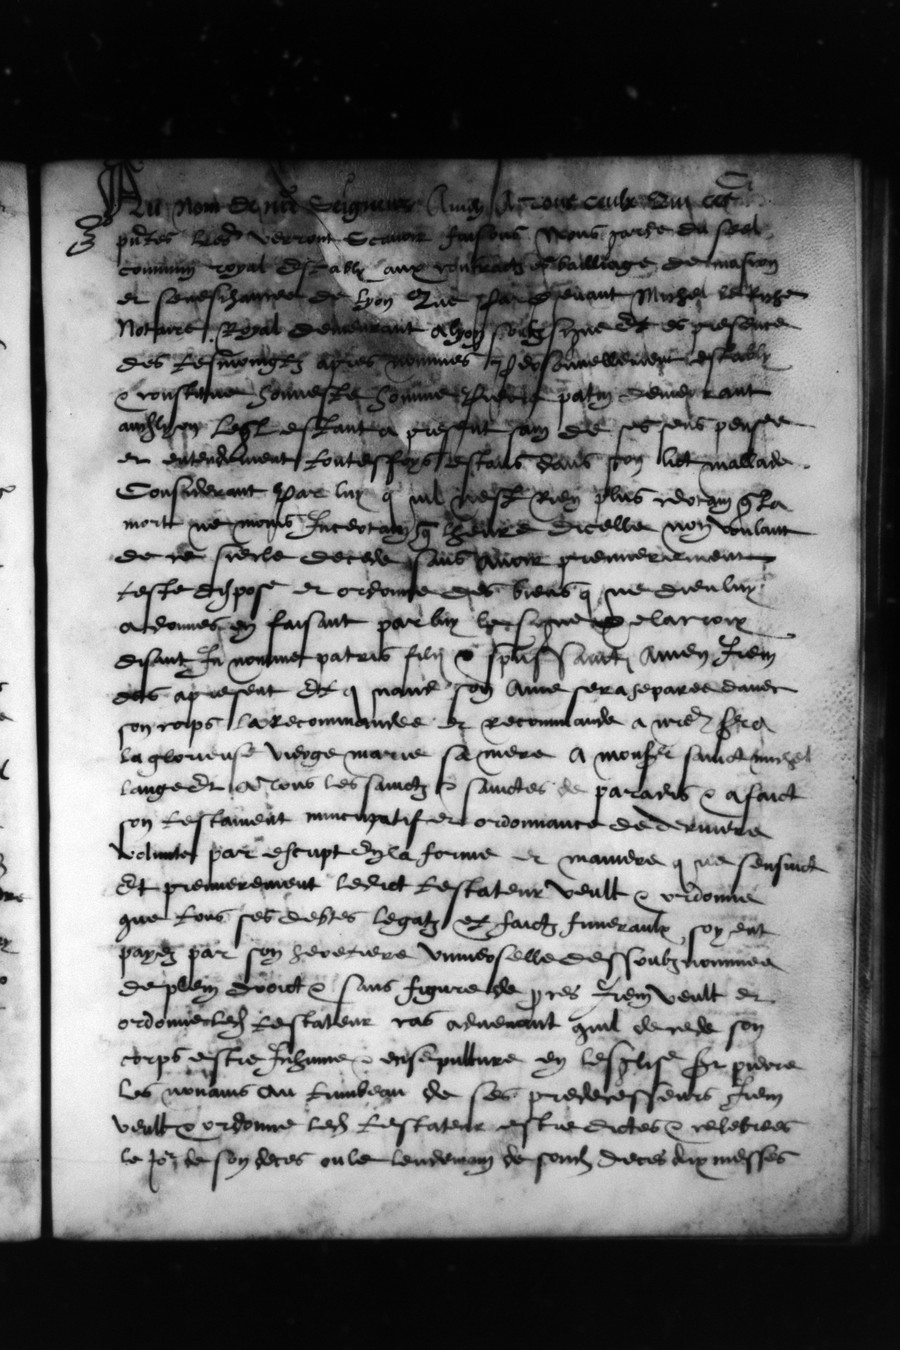 Au Nom de nre Seigneur Amen A Tous ceulx Qui ces
pntes lres verront Scavoir faisons Nous garde du Seel
commun royal estably aux contractz es bailliage de mascon
et seneschaucee de lyon Que par devant Michel
Notaire Royal demeurant a lyon soubz signe Et es presence
des tesmoingtz apres nommes personnellement estably
& constitue honneste homme pierre patin demeurant
audit lyon leql estant a present sain de ses sens pensee
et entendement toutesfoys estans dans son lict mallade
Considerant par luy q nul nest Rien plus certain q la
mort ne moins Incertain q lheure dicelle non voulant
de ce siecle decede sans avoir premierement
teste dispose et ordonne des biens q ne dieu luy
a donnes en faisant par luy le signe de la croix
disant In nomine patris filij & spus sancti Amen Item
des apresent Et q nand son Ame sera separee davec
son corps la recommandee et recommande a
la glorieuse vierge marie sa mere A monsr sainct michel
lange Et A Tous les sainctz & sainctes de paradis & a faict
son testament nuncupatif et ordonnance de derniere
volunte par escript En la forme et maniere q ne sensuict
Et premierement ledict testateur veult & ordonne
que tous ses debtes legatz et faictz funeraulx soyent
payez par son heretiere universelle dessoubz nommee
de plein droict & sans figure de pces Item veult et
ordonne led testateur cas advenant quil decede son
corps estre Inhume & ensepulture en lesglise St pierre
les nonains Au tumbeau de ses predecesseurs Item
veult & ordonne led testateur estre dictes & celebrees
le Jor de son deces ou le lendemain de sond deces dix messes